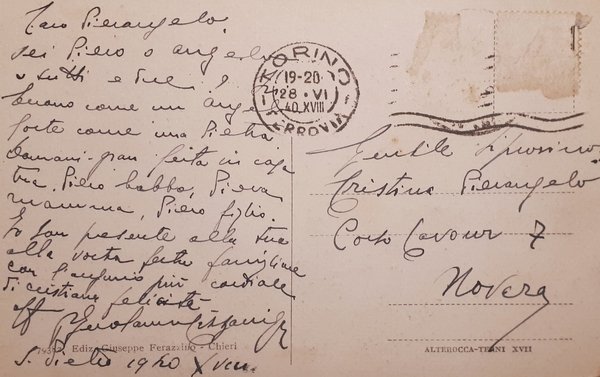 Caro Pierangelo.
sei Piero o angelo
o tutti e due?
buono come un angelo
forte come una Pietra
Domani gran festa in casa
tua, Piero babbo, Piera
mamma, Piero figlio.
Io son presente alla tua
alla vostra festa famigliare
con l'augurio più cordiale
di cristiana felicità
aff
S. Pietro 1940 XVIII
79377 Ediz. Giuseppe Ferazzino - Chieri
TORINO
19-20
28 · VI
40. XVIII
FERROVIA
Gentile
Cristina Pierangelo
Corso Cavour 7
Novara
ALTEROCCA-TERNI XVII